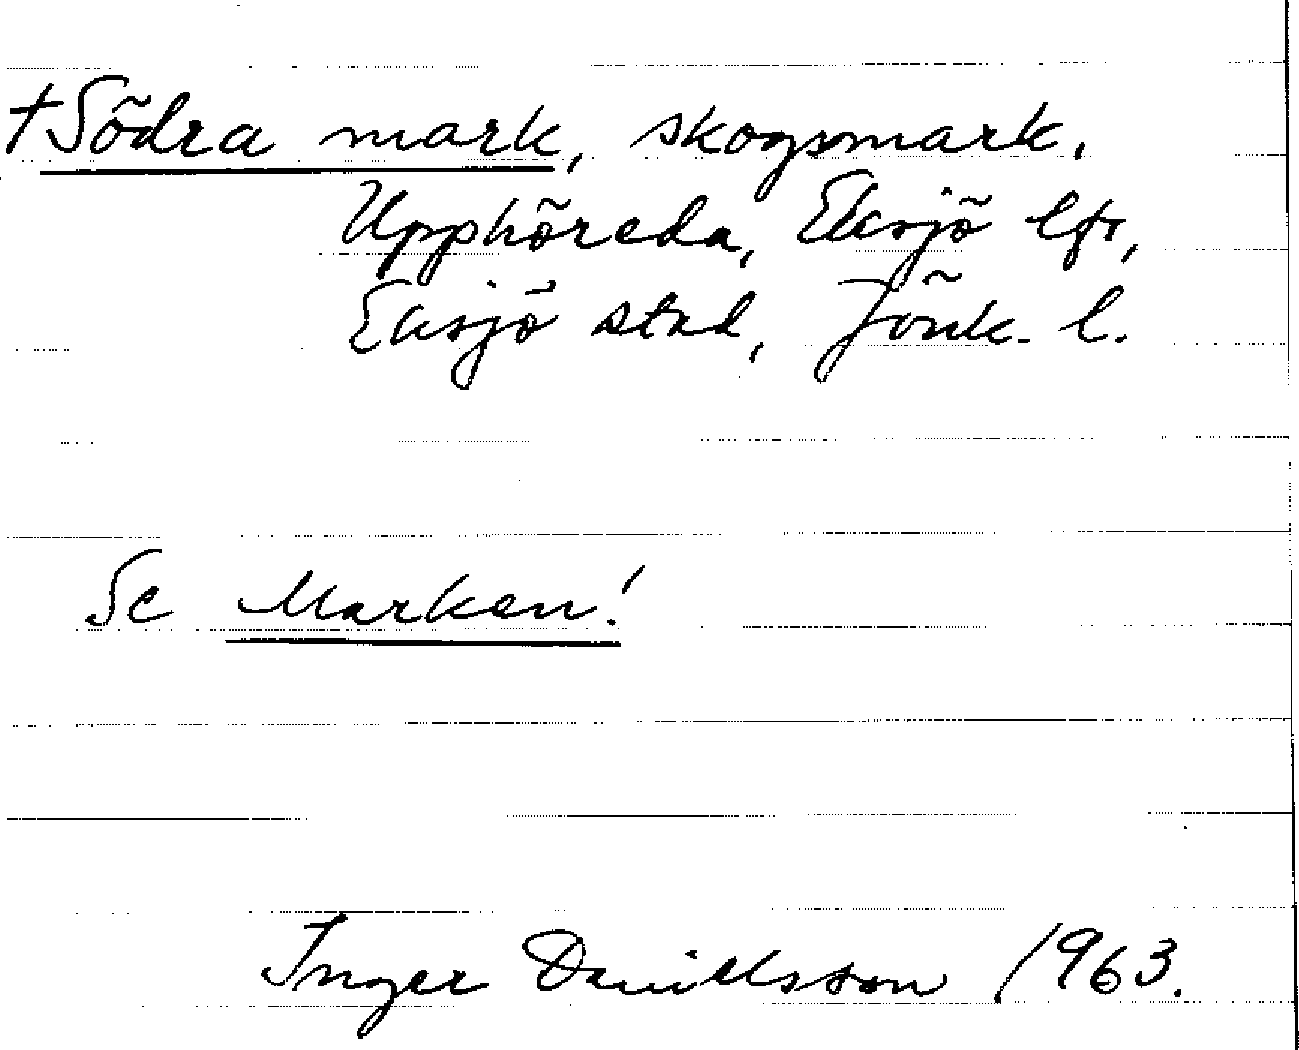 †Södra mark, skogsmark.
Upphöreda, Eksjö lfs,
Eksjö stad, Jönk. l.
Se Marken!
Inger Danielsson 1963.